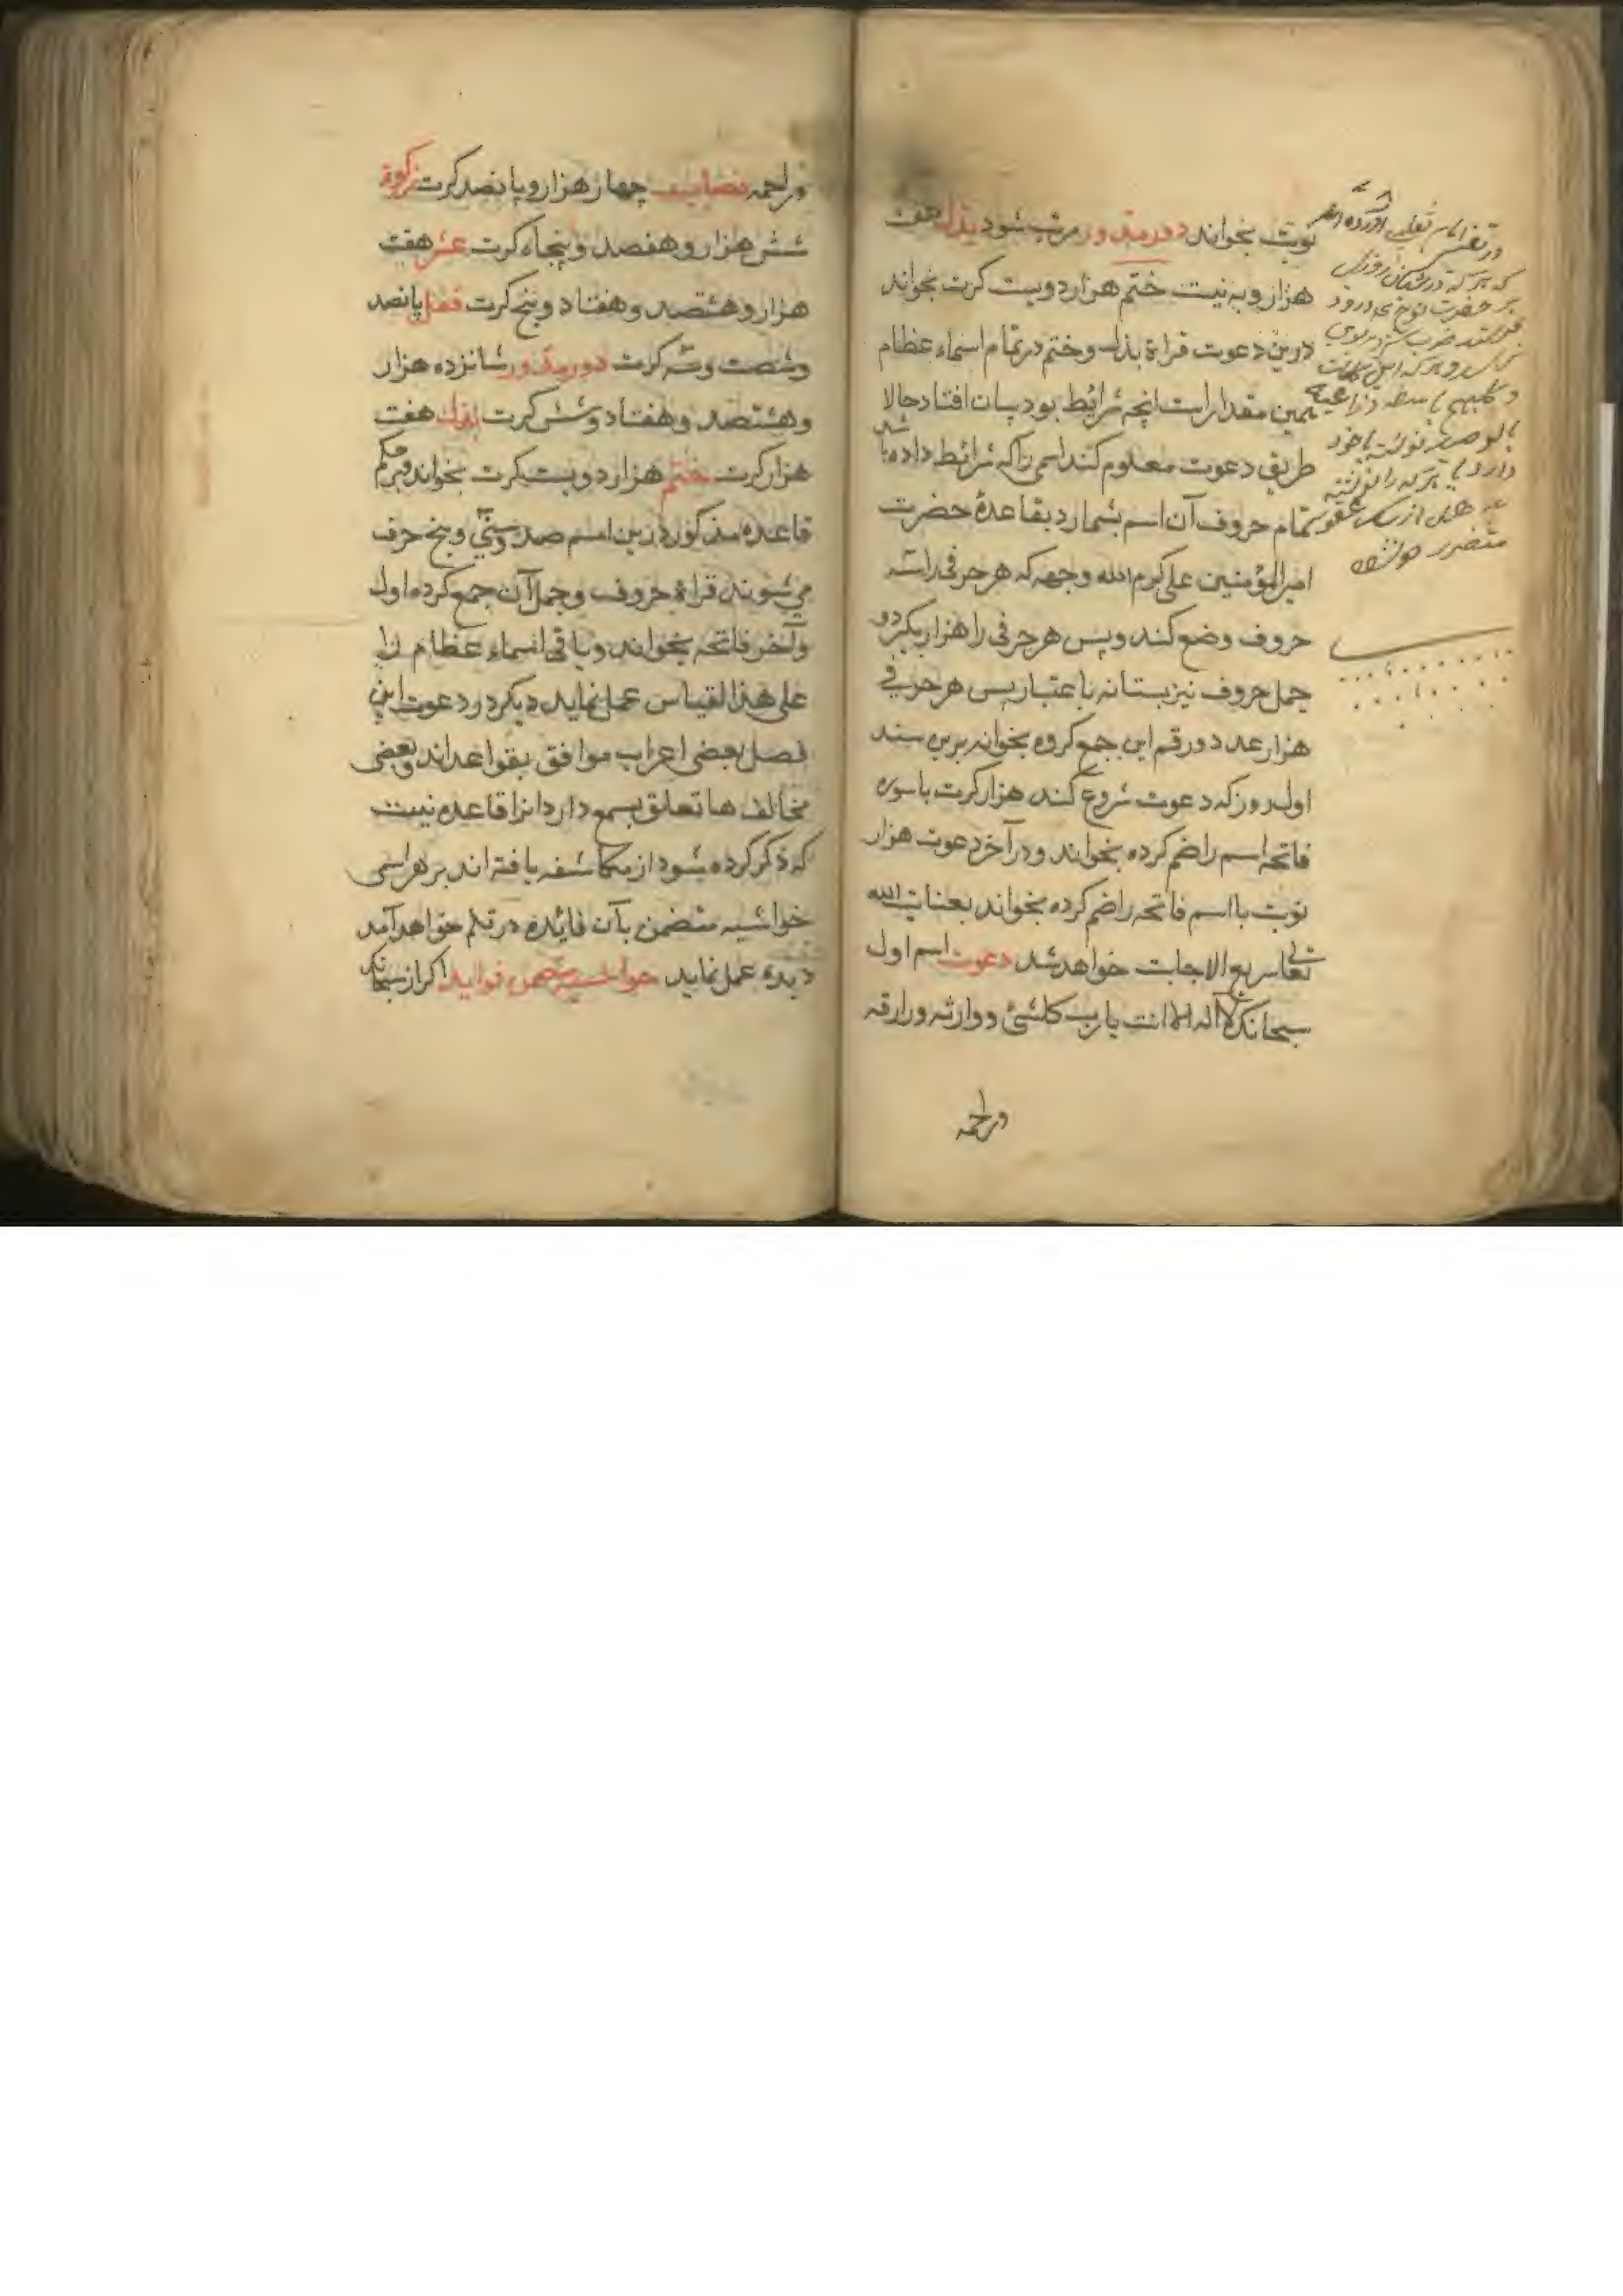 نوبت بخواند دور مدور مرتب شود بذل هفت
هزار و به نیت ختم هزار دویست کرت بخواند
درین دعوت قراة بذل و ختم در تمام اسماء عظام
همین مقدار است انچه شرائط بود بیان افتاد حالا
طریق دعوت معلوم کند اسمی را که شرائط داده باشد
تمام حروف آن اسم بشمارد بقاعدهٔ حضرت
امیر المؤمنین علی کرم الله وجهه که هر حرفی راسه
حروف وضع کند و پس هر حرفی را هزار بگیرد و
جمل حروف نیز بستانه باعتبار پس هر حرفی
هزار عدد و رقم این جمع کروه بخواند برین سند
اول روز که دعوت شروع کند هزار کرت با سوره
فاتحه اسم را ضم کرده بخواند و در آخر دعوت هزار
نوبت با اسم فاتحه را ضم کرده بخواند بعنایت الله
تعالی سریع الاجابت خواهد شد دعوت اسم اول
سبحانک لا اله الا انت یا رب کلشئ و وارثه و رازقه
وراحمه
در تفسیر امام ثعلبی آورده
که هر که در
بر حضرت نوح درود
و هر که این کلمات
نوشته با خود
دارد
وراحمه نصاب چهار هزار و پانصد کرت زکوة
شش هزار و هفصد و پنجاه کرت عشر هفت
هزار و هشتصد و هفتاد و پنج کرت قفل پانصد
و شصت و سه کرت دور مدور شانزده هزار
و هشتصد و هفتاد و شش کرت بذل هفت
هزار کرت ختم هزار دویست کرت بخواند و بحکم
قاعده مذکور درین اسم صد و سی و پنج حرف
می شوند قراة حروف و جمل آن جمع کرده اول
و آخر فاتحه بخواند و باقی اسماء عظام را
علی هذا القیاس عمل نماید دیگر در دعوت این
فصل بعضی اعراب موافق بقواعد اند و بعضی
مخالف ها تعلق بسمع دارد انرا قاعده نیست
که ذکر کرده شود از مکاشفه یافته اند بر هر اسمی
خواشیه متضمن بآن فائده در قلم خواهد آمد
دیده عمل نماید حواشیه متضمن فواید اکر از سبحانک